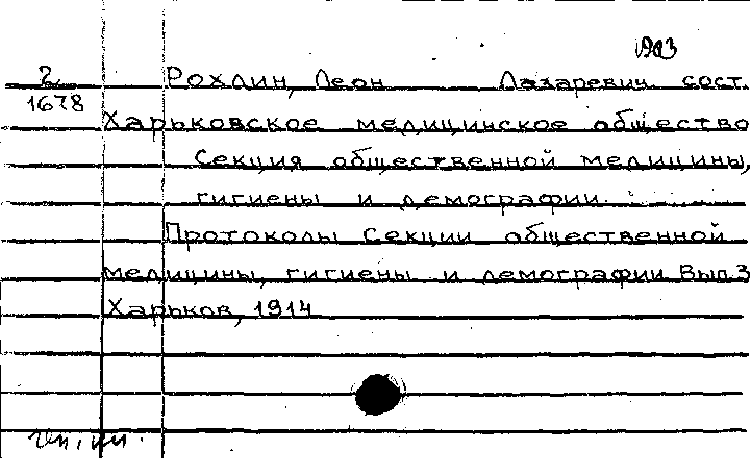 2
1678
Рохлин, Леон Лазаревич сост.
Харьковское медицинское общество
Секция общественной медицины,
гигиены и демографии.
Протоколы Секции общественной
медицины, гигиены и демографии Вып. 3
Харьков, 1914